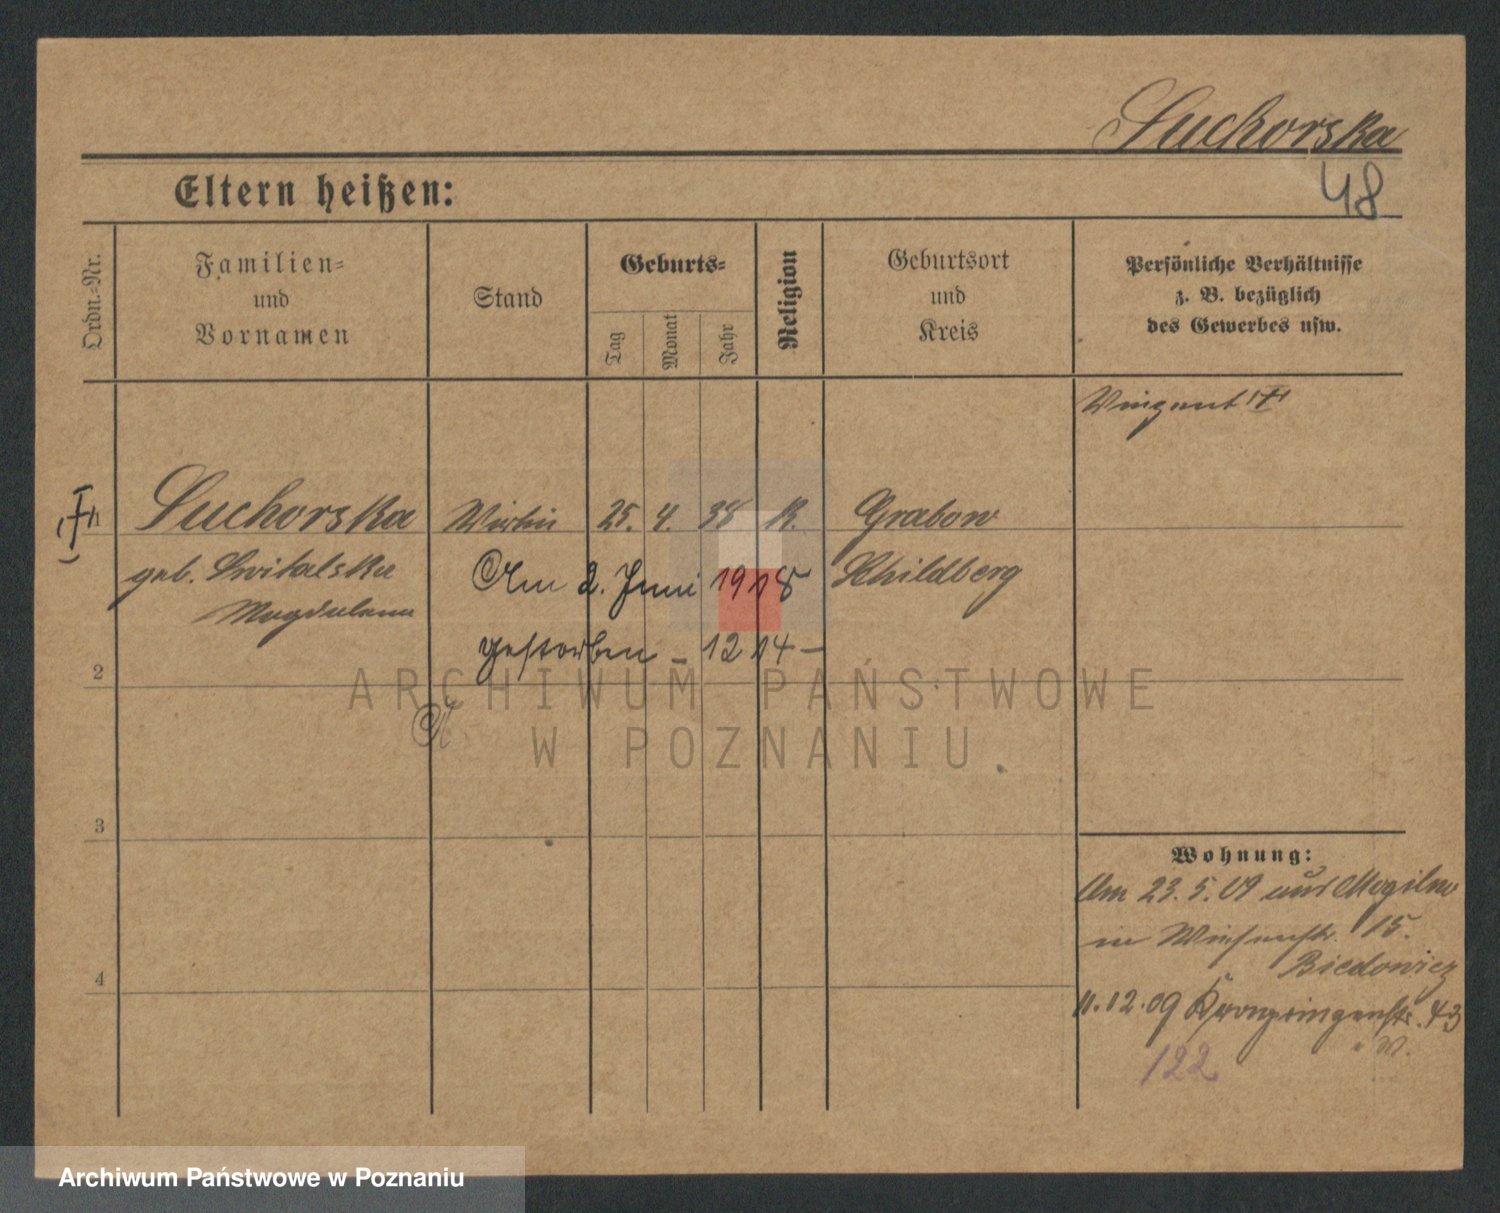 Suchorska
48
Eltern heißen:
Ordn.-Nr.
Familien-
und
Vornamen
Stand
Geburts-
Tag
Monat
Jahr
Religion
Geburtsort
und
Kreis
Persönliche Verhältnisse
z. B. bezüglich
des Gewerbes usw.
1 Suchorska 25. 4. 38 K. Grabow
geb. Switalska Am 2. Juni 1918 Schildberg
Magdalena
gestorben – 1214 –
2
3
4
Wohnung:
Am 23.5.09 aus Mogilno
in Wiesenstr. 15.
Biedowicz
11.12.09 Kronprinzenstr. 43
122
ARCHIWUM PAŃSTWOWE
W POZNANIU
Archiwum Państwowe w Poznaniu